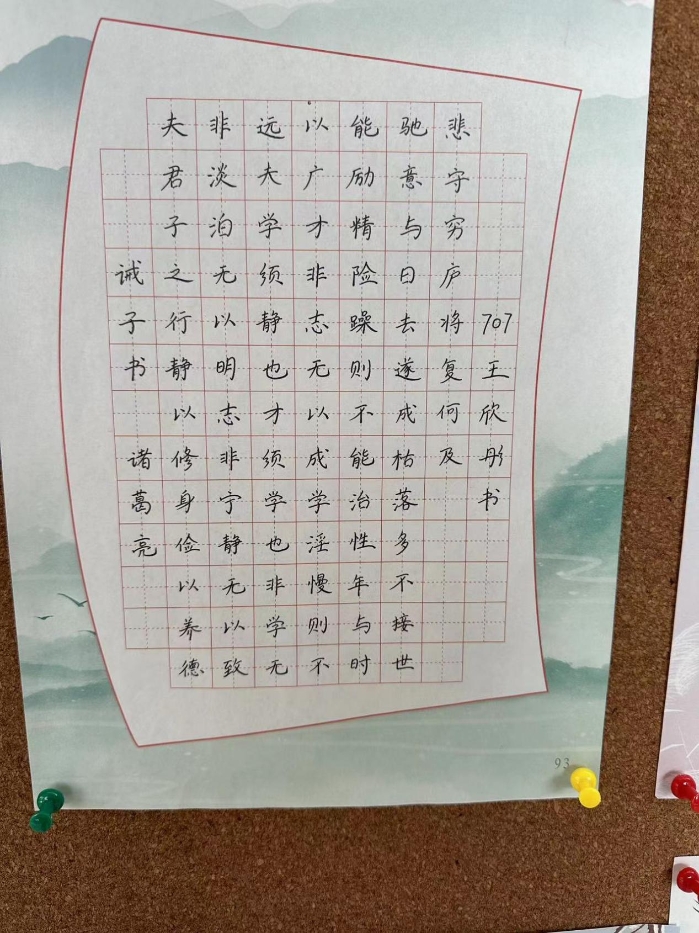 诫子书 诸葛亮
夫君子之行静以修身俭以养德
非淡泊无以明志非宁静无以致
远夫学须静也才须学也非学无
以广才非志无以成学淫慢则不
能励精险躁则不能治性年与时
驰意与日去遂成枯落多不接世
悲守穷庐将复何及
707王欣彤书
93